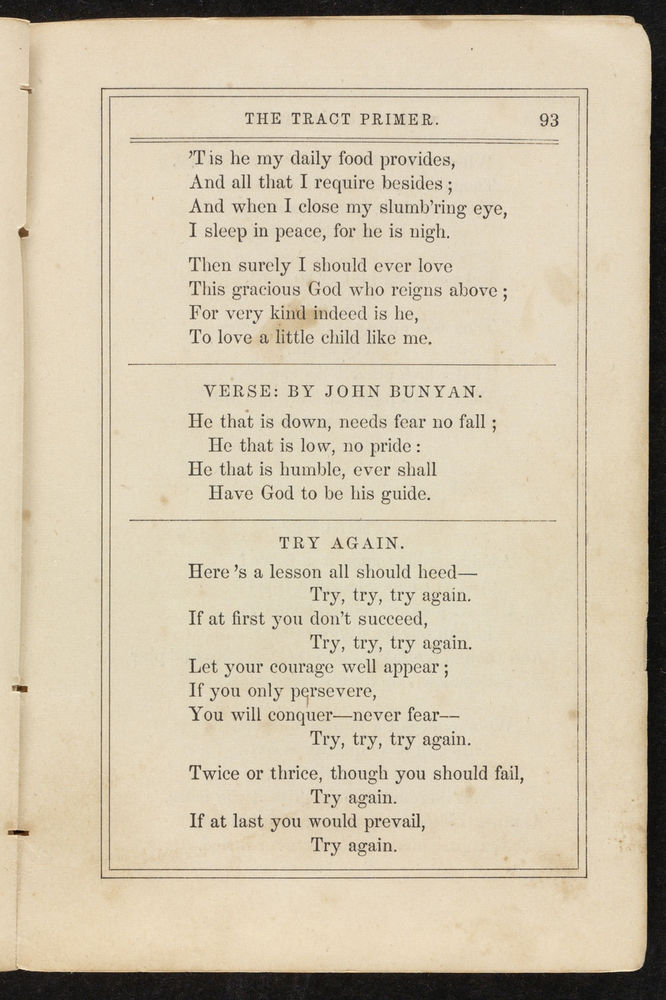 THE TRACT PRIMER. 93
’Tis he my daily food provides,
And all that I require besides;
And when I close my slumb’ring eye,
I sleep in peace, for he is nigh.
Then surely I should ever love
This gracious God who reigns above;
For very kind indeed is he,
To love a little child like me.
VERSE: BY JOHN BUNYAN.
He that is down, needs fear no fall;
He that is low, no pride:
He that is humble, ever shall
Have God to be his guide.
TRY AGAIN.
Here’s a lesson all should heed—
Try, try, try again.
If at first you don’t succeed,
Try, try, try again.
Let your courage well appear;
If you only persevere,
You will conquer—never fear—
Try, try, try again.
Twice or thrice, though you should fail,
Try again.
If at last you would prevail,
Try again.